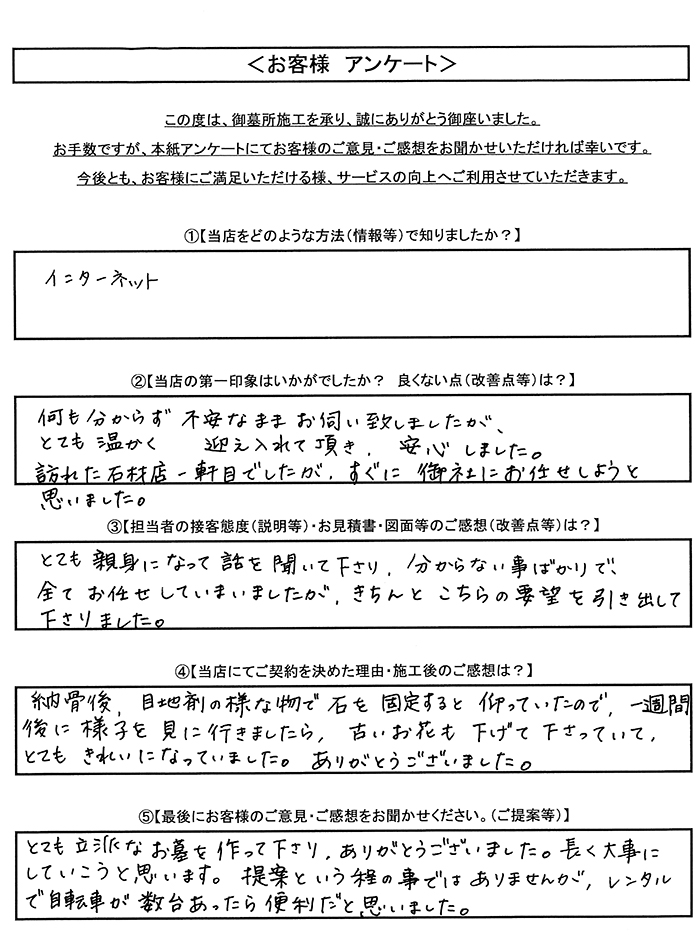 ＜お客様　アンケート＞
この度は、御墓所施工を承り、誠にありがとう御座いました。
お手数ですが、本紙アンケートにてお客様のご意見・ご感想をお聞かせいただければ幸いです。
今後とも、お客様にご満足いただける様、サービスの向上へご利用させていただきます。
①【当店をどのような方法（情報等）で知りましたか？】
インターネット
②【当店の第一印象はいかがでしたか？　良くない点（改善点等）は？】
何も分からず 不安なまま お伺い致しましたが、
とても 温かく　迎え入れて頂き、安心 しました。
訪れた石材店 一軒目でしたが、すぐに 御社にお任せしようと
思いました。
③【担当者の接客態度（説明等）・お見積書・図面等のご感想（改善点等）は？】
とても 親身になって 話を 聞いて 下さり、分からない事ばかりで、
全て お任せしてしまいましたが、きちんと こちらの 要望を引き出して
下さりました。
④【当店にてご契約を決めた理由・施工後のご感想は？】
納骨後、目地剤の様な物で 石を 固定すると 仰っていたので、一週間
後に 様子を 見に行きましたら、古いお花も 下げて 下さっていて、
とても きれいになっていました。ありがとうございました。
⑤【最後にお客様のご意見・ご感想をお聞かせください。（ご提案等）】
とても 立派な お墓を 作って下さり、ありがとうございました。長く大事に
していこうと思います。提案という程の事では ありませんが、レンタル
で自転車が 数台あったら 便利だと思いました。